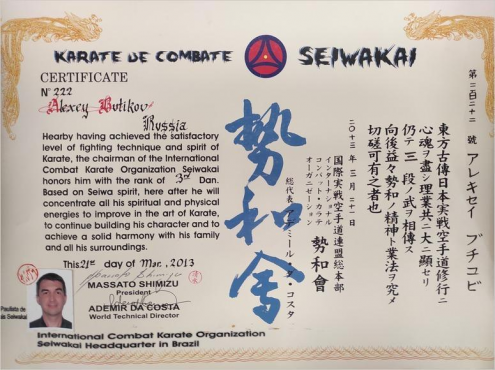 KARATE DE COMBATE SEIWAKAI
CERTIFICATE
Nº 222
Alexey Butikov
Russia
Hearby having achieved the satisfactory
level of fighting technique and spirit of
Karate, the chairman of the International
Combat Karate Organization Seiwakai
honors him with the rank of 3rd Dan.
Based on Seiwa spirit, here after he will
concentrate all his spiritual and physical
energies to improve in the art of Karate,
to continue building his character and to
achieve a solid harmony with his family
and all his surroundings.
This 21st day of Mar., 2013
MASSATO SHIMIZU
President
ADEMIR DA COSTA
World Technical Director
Paulista de
International Combat Karate Organization
Seiwakai Headquarter in Brazil
第二百二十二號
アレキセイ ブチコビ
東方古傳日本実戦空手道修行ニ
心魂ヲ盡シ理業共ニ大ニ顕セリ
仍テ三段ノ武ヲ相傳ス
向後益々勢和ノ精神ト業法ヲ究メ
切磋可有之者也
二〇十三年三月二十一日
国際実戦空手道連盟総本部
インターナショナル
コンバット・カラテ
オーガニゼーション
勢和會
総代表 アデミール・ダ・コスタ
勢和會